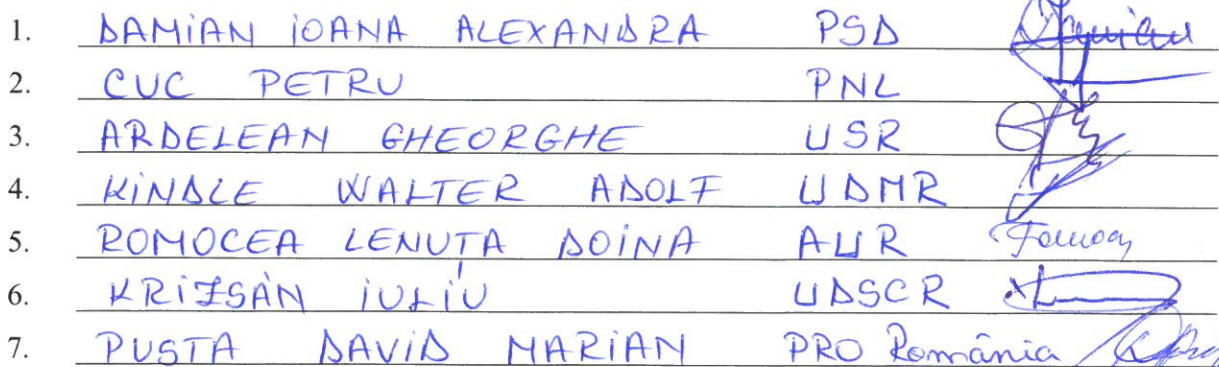 1. DAMIAN IOANA ALEXANDRA PSD
2. CUC PETRU PNL
3. ARDELEAN GHEORGHE USR
4. KINDLE WALTER ADOLF UDMR
5. ROMOCEA LENUȚA DOINA AUR
6. KRIZSÁN IULIU UDSCR
7. PUSTA DAVID MARIAN PRO România